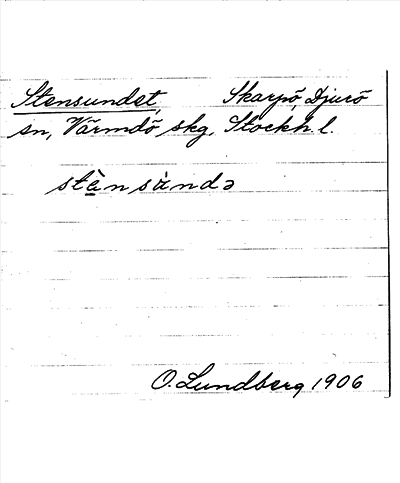 Stensundet, Skarpö, Djurö
sn, Värmdö skg, Stockh. l.
stè̱nsùndə
O. Lundberg 1906